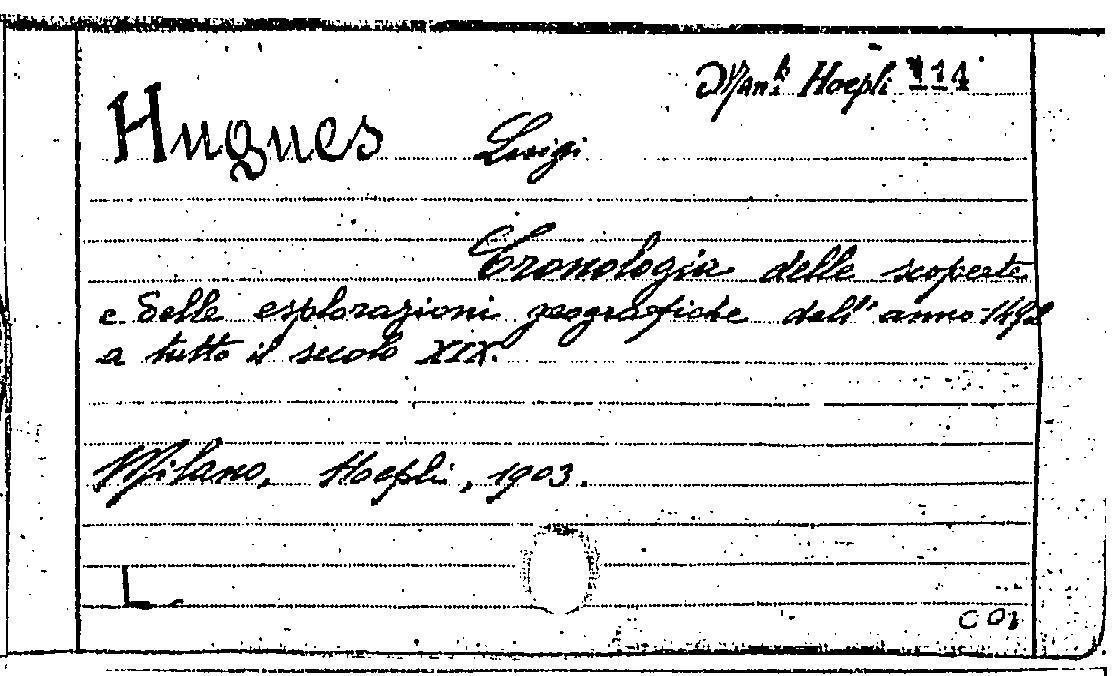 Man.li Hoepli 114
Hughes Luigi
Cronologia delle scoperte
e delle esplorazioni geografiche dall' anno 1492
a tutto il secolo XIX.
Milano, Hoepli, 1903.
L